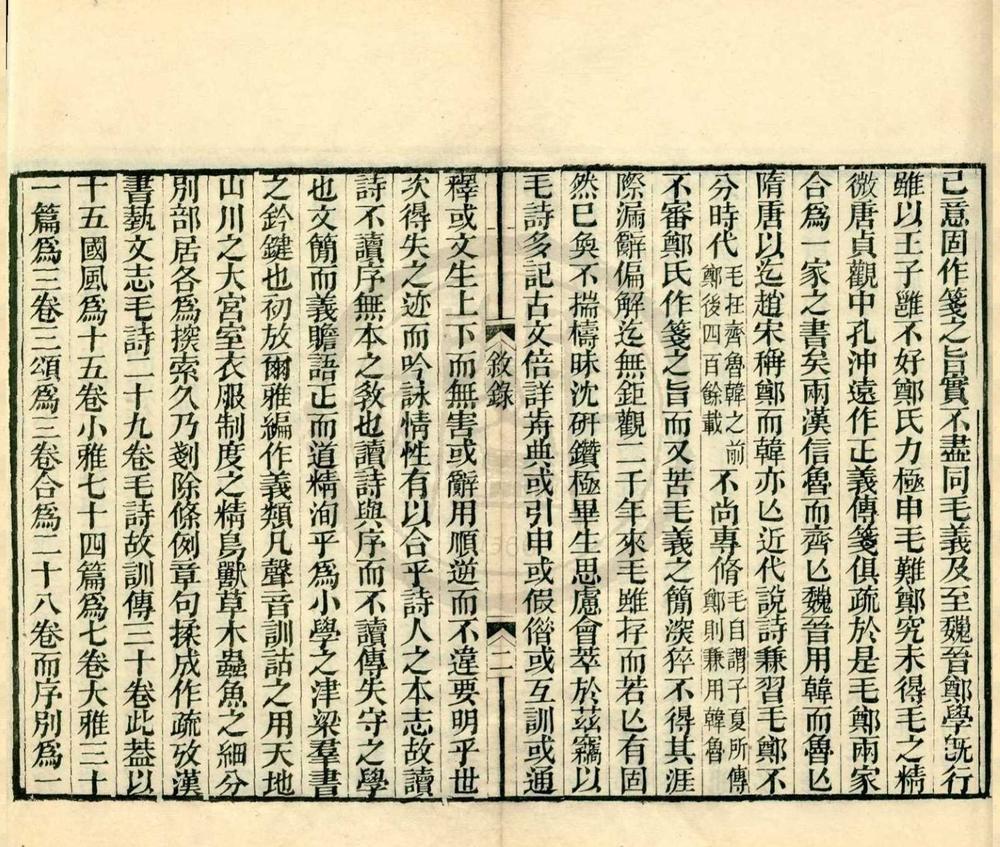 己意固作箋之旨實不盡同毛義及至魏晉鄭學旣行
雖以王子雝不好鄭氏力極申毛難鄭究未得毛之精
微唐貞觀中孔沖遠作正義傳箋俱疏於是毛鄭兩家
合爲一家之書矣兩漢信魯而齊亾魏晉用韓而魯亾
隋唐以迄趙宋稱鄭而韓亦亾近代說詩兼習毛鄭不
分時代毛在齊魯韓之前鄭後四百餘載不尚專脩毛自謂子夏所傳鄭則兼用韓魯
不審鄭氏作箋之旨而又苦毛義之簡深猝不得其涯
際漏辭偏解迄無鉅觀二千年來毛雖存而若亾有固
然已奐不揣檮昧沈研鑽極畢生思慮會萃於茲竊以
毛詩多記古文倍詳歬典或引申或假借或互訓或通
敘錄
二
釋或文生上下而無害或辭用順逆而不違要明乎世
次得失之迹而吟詠情性有以合乎詩人之本志故讀
詩不讀序無本之敎也讀詩與序而不讀傳失守之學
也文簡而義贍語正而道精洵乎爲小學之津梁羣書
之鈐鍵也初放爾雅編作義類凡聲音訓詁之用天地
山川之大宮室衣服制度之精鳥獸草木蟲魚之細分
別部居各爲探索久乃剗除條例章句揉成作疏攷漢
書藝文志毛詩二十九卷毛詩故訓傳三十卷此葢以
十五國風爲十五卷小雅七十四篇爲七卷大雅三十
一篇爲三卷三頌爲三卷合爲二十八卷而序別爲一